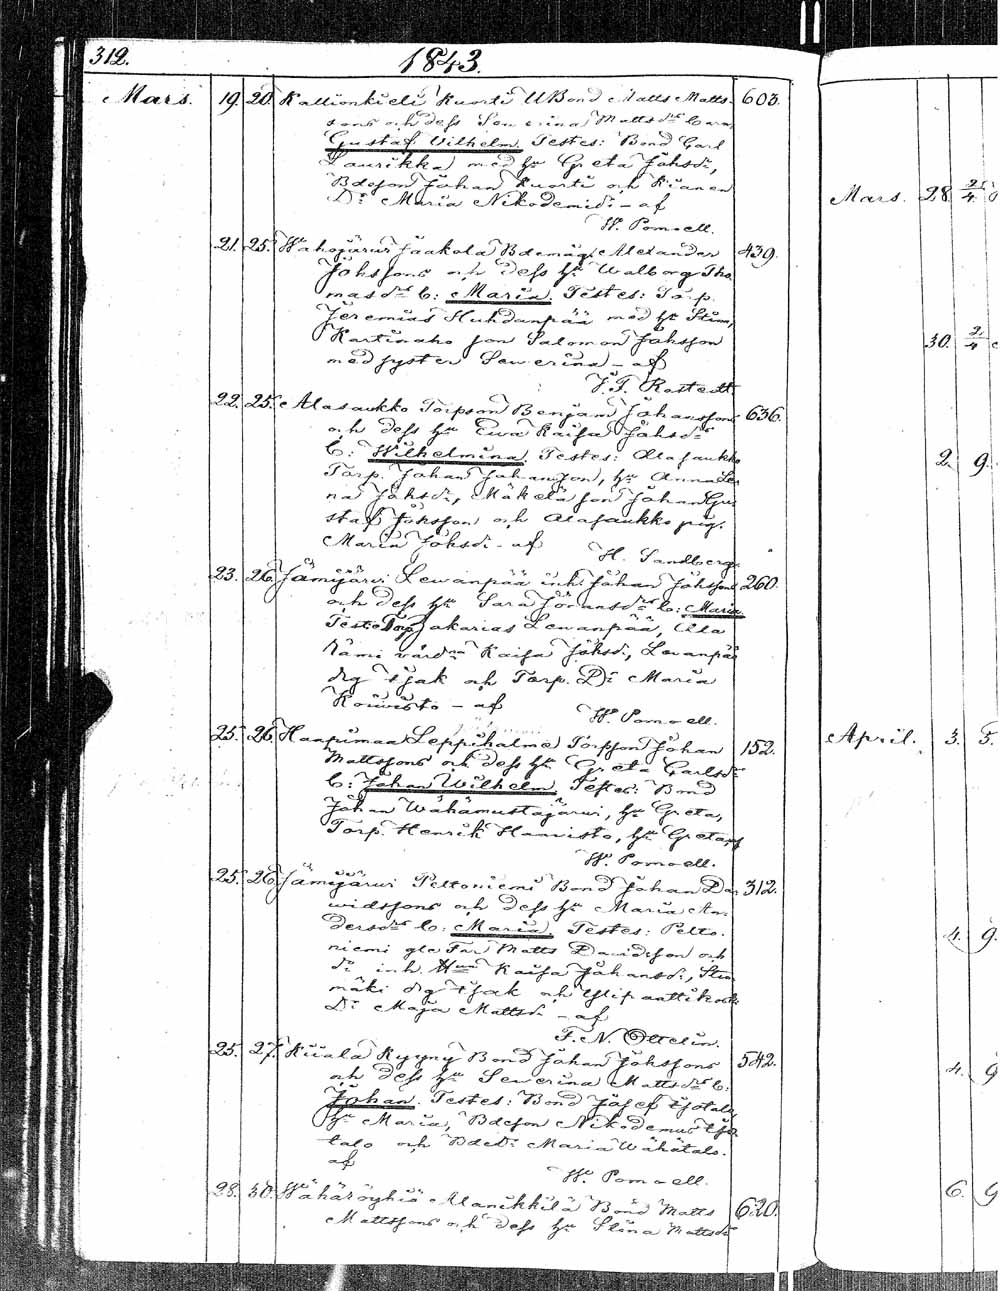 312.
1843.
Mars. 19. 20. Kallionkieli Kuorti UBond Matts Matts- 603.
sons och dess Severina Mattsdrs
Gustaf Wilhelm. Testes: Bond Carl
Laurikka med hu Greta Johsdr,
Bdeson Johan Kuorti och
Dr Maria Nikodemidr - af
W. Pomoell.
21. 25. Wahojärwi Jaakola Bdemåg Alexander 439.
Johssons och dess hu Walborg Tho-
masdrs b: Maria. Testes: Torp.
Jeremias Huhdanpää med hu Stina,
Kartinaho son Salomon Johsson
med syster Severina - af
J. F. Rostedt.
22. 25. Alasaukko Torpson Benjam Johanssons 636.
och dess hu Ewa Kaisa Johsdrs
b: Wilhelmina. Testes: Alasaukko
Torp. Johan Johansson, hu Anna Le-
na Johsdr, Mäkelä son Johan Gu-
staf Johsson och Alasaukko pig.
Maria Johsdr - af
H. Sandberg.
23. 26. Jämijärwi Lewanpää inh. Johan Johssons 260.
och dess hu Sara Johansdrs b: Maria
Testes Torp Zakarias Lewanpää, Ala
Rämi Kaisa Johsdr, Lewanpää
drg Isak och Torp. Dr Maria
Koiwisto - af
W. Pomoell.
25. 26. Haapimaa Leppihalme Torpson Johan 152.
Mattssons och dess hu Greta Carlsdrs
b: Johan Wilhelm. Testes: Bond
Johan Wähämustajärwi, hu Greta,
Torp. Henrik Hanisto, hu Greta, af
W. Pomoell.
25. 26. Jämijärwi Peltoniemi Bond Johan Da- 312.
widssons och dess hu Maria An-
dersdrs b: Maria. Testes: Pelto-
niemi gle Far Matts Davidsson och
dr inh. Kaisa Johansdr,
mäki drg Isak och
Dr Maja Mattsdr - af
F. N. Ottelin.
25. 27. Kiiala Kyyny Bond Johan Johssons 542.
och dess hu Severina Mattsdrs b:
Johan. Testes: Bond Josef Isotalo,
hu Maria, Bdeson Nikodemus Iso-
talo och Bdedr Maria Wähätalo.
af
W. Pomoell.
28. 30. Wähäröyhiö Alanikkilä Bond Matts 620.
Mattssons och dess hu Stina Mattsdr
Mars. 28 2/4
30. 2/4
2. 9.
April. 3. 5.
4. 9.
4. 9
6. 9